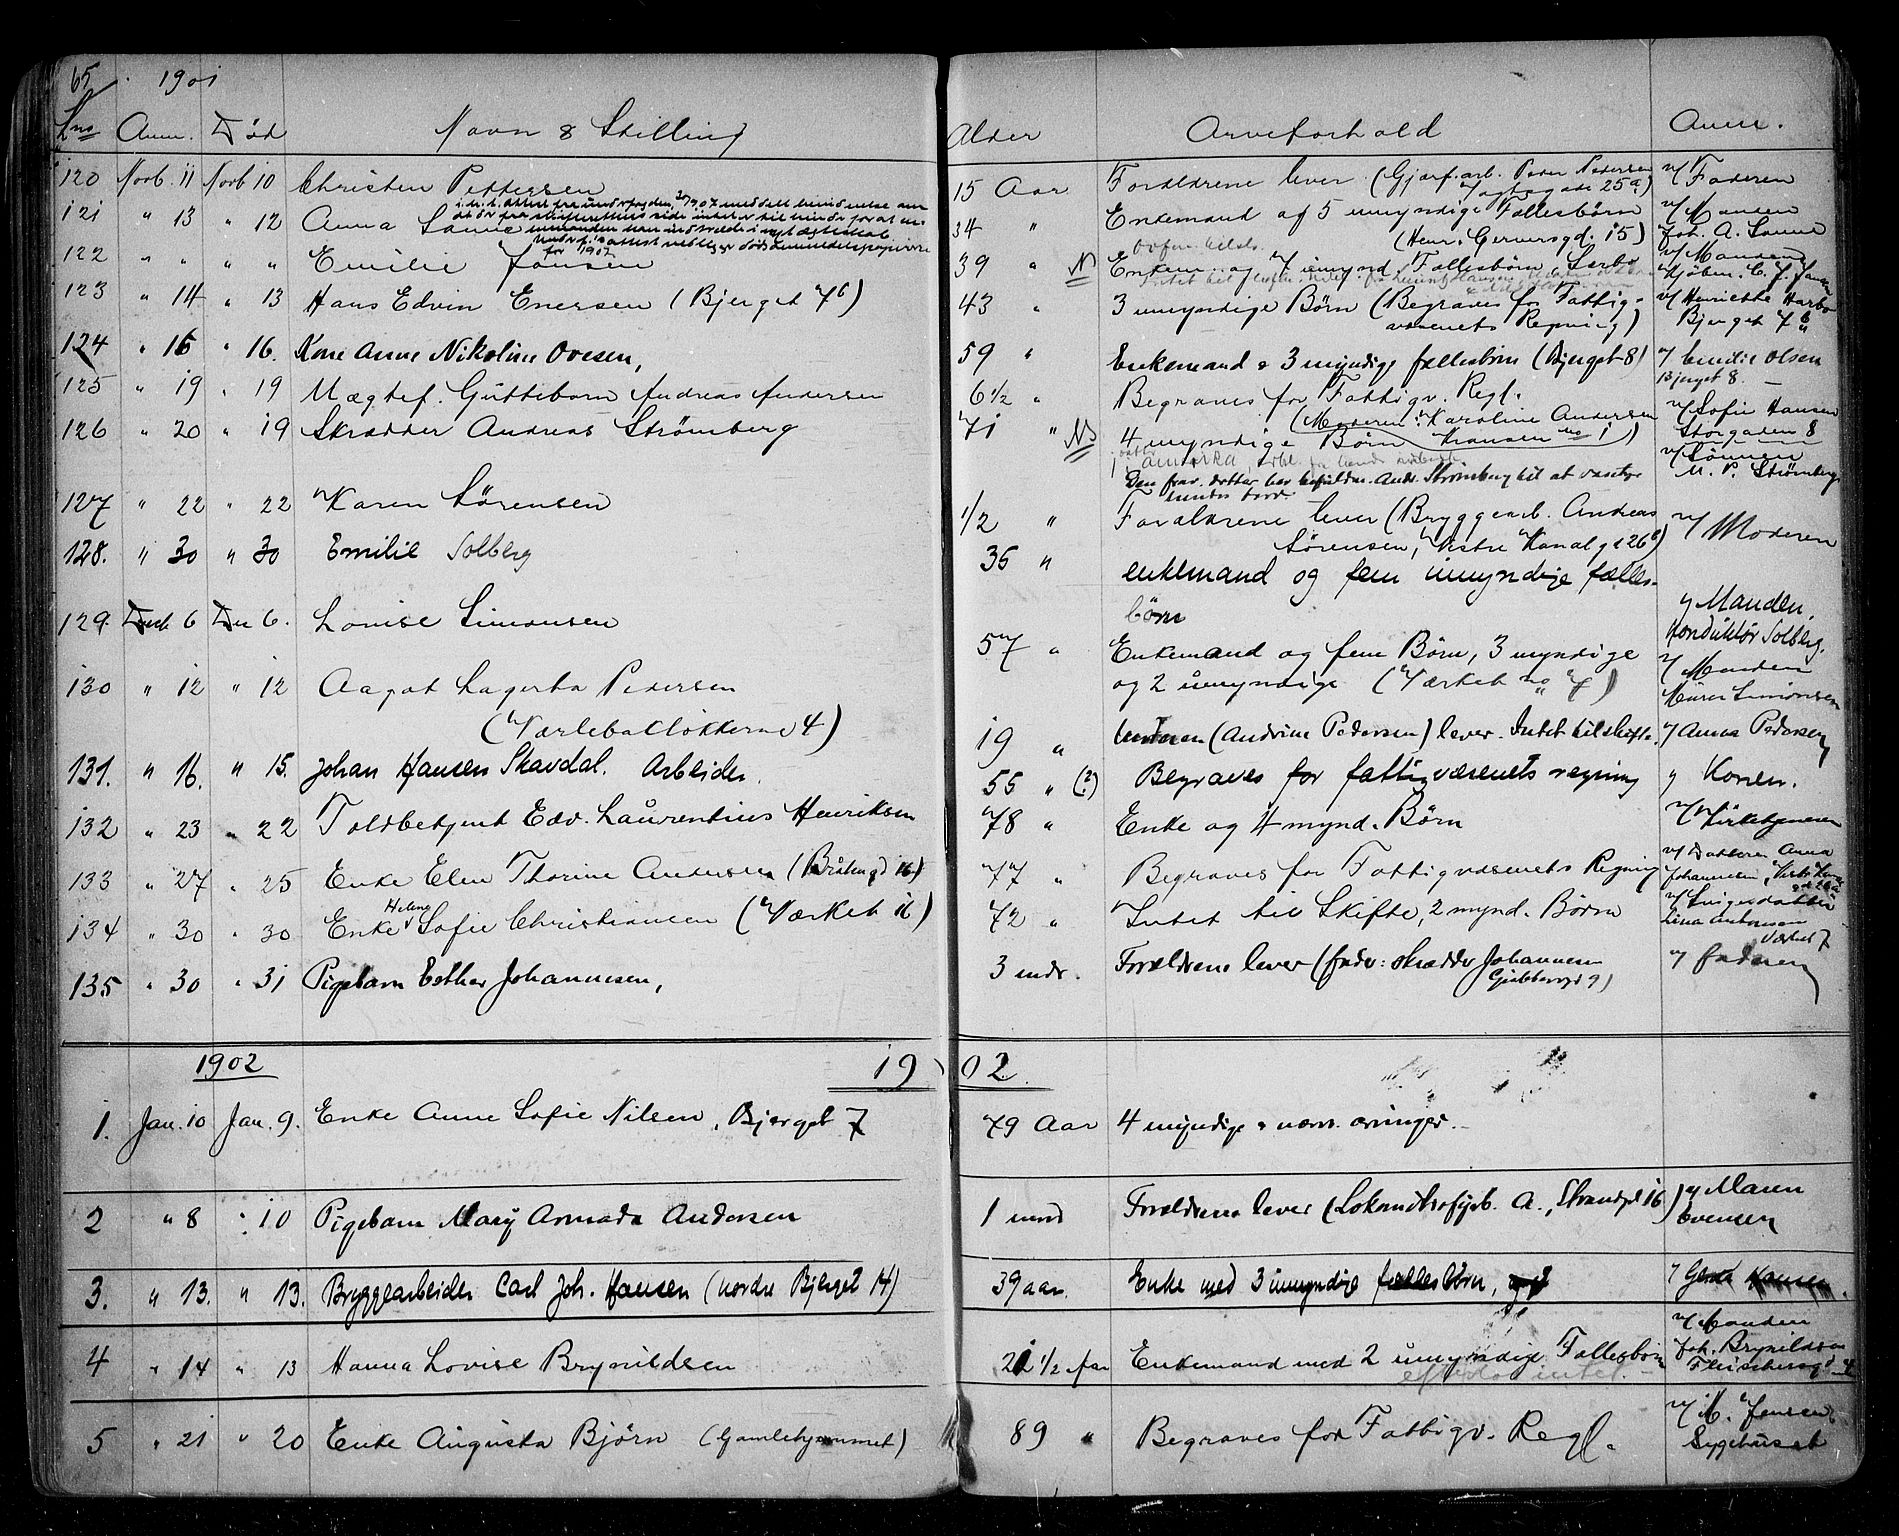 65 1901
Lno Anm. Død Navn & Stilling Alder Arveforhold Anm.
120 Novb. 11 Novb 10 Christen Pettersen 15 Aar Forældrene lever (Gjørf. arb. Peder Pedersen v/ Faderen
25a)
121 " 13 " 12 Anna Sanne 34 " Enkemand af 5 umyndige Fællesbørn v/ Manden
(Henr. Gernersgd. 15) Joh. A. Sanne
122 " " " " Emilie Jansen 39 " NB Enkem. og 7 umynd Fællesbørn v/ Manden
for 1907
123 " 14 " 13 Hans Edvin Enersen (Bjerget 7b) 43 " 3 umyndige Børn (Begraves for Fattig- v/ Henriette Harbo
væsenets Regning) Bjerget 7b
124 " 16 " 16. Kone Anne Nikoline Ovesen, 59 " Enkemand & 3 myndige fællesbørn (Bjerget 8) v/ Olsen
Bjerget 8.
125 " 19 " 19 Vægtef. Guttebarn Andreas Andersen 6 1/2 " Begraves for Fattigv. Regl.
(Moderen: Karoline Andersen v/ Sofie Hansen
126 " 20 " 19 Skrædder Andreas Strømberg 71 " NB 4 umyndige Børn No 1) Storgaden 8
v/ Sønnen
M. P. Strømberg
Den frav. datter har befuldm. Andr. Strømberg til at varetage
hendes tarv.
127 " 22 " 22 Karen Sørensen 1/2 " Forældrene lever (Bryggearb. Andreas v/ Moderen
Sørensen, Vestre Kanalgd 26b)
128. " 30 " 30 Emilie Solberg 36 " enkemand og fem umyndige fælles-
børn v/ Manden,
Konduktør Solberg.
129. Decb 6 Dec 6. Lovise Simonsen 57 " Enkemand og fem Børn, 3 myndige v/ Manden
og 2 umyndige (Værket No 7) Murer Simonsen
130 " 12 " 12 Aagot Lagerta Pedersen
(Varlebakløkkerne 4) 19 " Moderen (Andrine Pedersen) lever. Intet til skifte. v/ Anna Pedersen
131. " 16. " 15. Johan Hansen Skavdal. Arbeider. 55 " (?) Begraves for fattigvæsenets regning v/ Konen.
132 " 23 " 22 Toldbetjent Edv. Laurentius Henriksen 78 " Enke og 4 mynd. Børn v/ Kirketjeneren
133 " 27 " 25 Enke Elen Thorine Andersen (Bråtengd 16) 77 " Begraves for Fattigvæsenets Regning v/ Datteren Anna
Johannesen, Vestre
134 " 30 " 30 Enke Helene Sofie Christiansen (Værket 16) 72 " Intet til Skifte, 2 mynd. Børn v/ Svigerdatter
Lina Antonsen
Værket 7
135 " 30 " 31 Pigebarn Esther Johannesen, 3 mdr. Forældrene lever (fader: skrædder Johannesen v/ faderen
Grubbegd 9)
1902 1902.
1. Jan. 10 Jan. 9. Enke Anne Sofie Nilsen, Bjerget 7 79 Aar 4 myndige & nærv. arvinger.
2 " 8 " 10 Pigebarn Mary Armada Andersen 1 mnd Forældrene lever (Lokomotivfyrb. A., Strandgd 16) v/ Maren
Evensen
3. " 13. " 13. Bryggearbeider Carl Joh. Hansen (nordre Bjerget 14) 39 aar. Enke med 3 umyndige fællesbørn, v/ Gerda Hansen.
4 " 14 " 13 Hanna Lovise Brynildsen 21 1/2 Aar Enkemand med 2 umyndige Fællesbørn v/ Manden
Joh. Brynildsen
efterlod intet.
5 " 21 " 20 Enke Augusta Bjørn (Gamlehjemmet) 89 " Begraves for Fattigv. Regl. v/ M. Jensen
Sygehuset